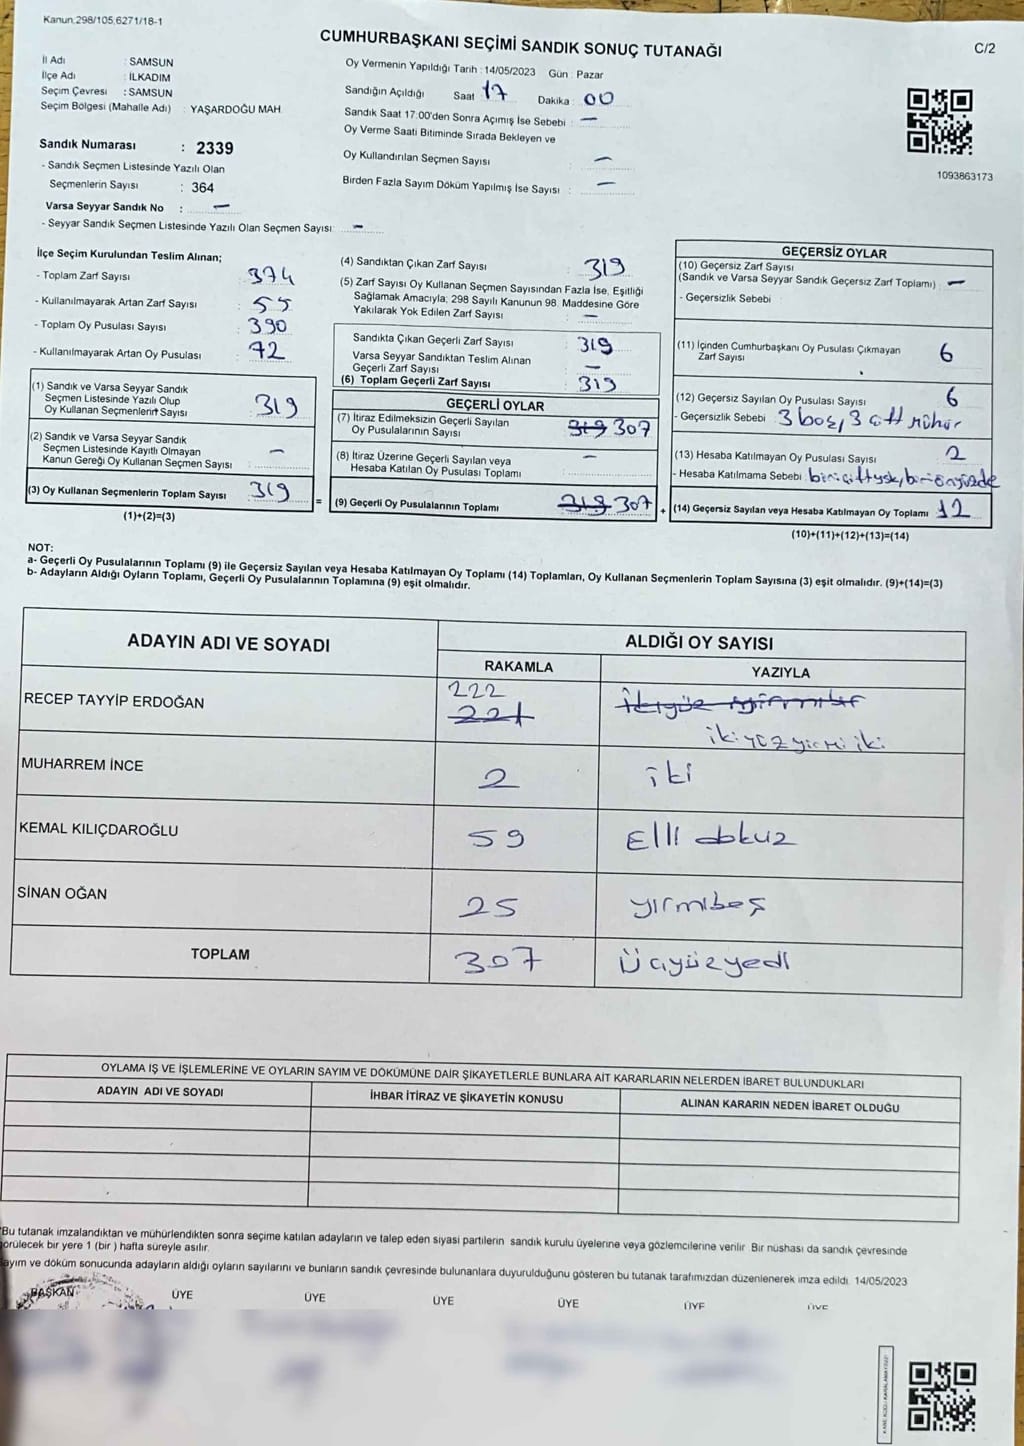 Kanun 298/105,6271/18-1
CUMHURBAŞKANI SEÇİMİ SANDIK SONUÇ TUTANAĞI
C/2
İl Adı : SAMSUN
İlçe Adı : İLKADIM
Seçim Çevresi : SAMSUN
Seçim Bölgesi (Mahalle Adı) : YAŞARDOĞU MAH.
Sandık Numarası : 2339
- Sandık Seçmen Listesinde Yazılı Olan
Seçmenlerin Sayısı : 364
Varsa Seyyar Sandık No : —
- Seyyar Sandık Seçmen Listesinde Yazılı Olan Seçmen Sayısı: —
Oy Vermenin Yapıldığı Tarih : 14/05/2023 Gün : Pazar
Sandığın Açıldığı Saat 17 Dakika : 00
Sandık Saat 17:00'den Sonra Açımış İse Sebebi : —
Oy Verme Saati Bitiminde Sırada Bekleyen ve
Oy Kullandırılan Seçmen Sayısı : —
Birden Fazla Sayım Döküm Yapılmış İse Sayısı : —
1093863173
İlçe Seçim Kurulundan Teslim Alınan;
- Toplam Zarf Sayısı : 374
- Kullanılmayarak Artan Zarf Sayısı : 55
- Toplam Oy Pusulası Sayısı : 390
- Kullanılmayarak Artan Oy Pusulası : 72
(1) Sandık ve Varsa Seyyar Sandık
Seçmen Listesinde Yazılı Olup
Oy Kullanan Seçmenlerin Sayısı : 319
(2) Sandık ve Varsa Seyyar Sandık
Seçmen Listesinde Kayıtlı Olmayan
Kanun Gereği Oy Kullanan Seçmen Sayısı : —
(3) Oy Kullanan Seçmenlerin Toplam Sayısı : 319
(1)+(2)=(3)
=
(4) Sandıktan Çıkan Zarf Sayısı : 319
(5) Zarf Sayısı Oy Kullanan Seçmen Sayısından Fazla İse, Eşitliği
Sağlamak Amacıyla; 298 Sayılı Kanunun 98. Maddesine Göre
Yakılarak Yok Edilen Zarf Sayısı : —
Sandıkta Çıkan Geçerli Zarf Sayısı : 319
Varsa Seyyar Sandıktan Teslim Alınan
Geçerli Zarf Sayısı : —
(6) Toplam Geçerli Zarf Sayısı : 319
GEÇERLİ OYLAR
(7) İtiraz Edilmeksizin Geçerli Sayılan
Oy Pusulalarının Sayısı : 319 307
(8) İtiraz Üzerine Geçerli Sayılan veya
Hesaba Katılan Oy Pusulası Toplamı : —
(9) Geçerli Oy Pusulalarının Toplamı : 319 307
+
GEÇERSİZ OYLAR
(10) Geçersiz Zarf Sayısı
(Sandık ve Varsa Seyyar Sandık Geçersiz Zarf Toplamı) : —
- Geçersizlik Sebebi :
(11) İçinden Cumhurbaşkanı Oy Pusulası Çıkmayan
Zarf Sayısı : 6
(12) Geçersiz Sayılan Oy Pusulası Sayısı : 6
- Geçersizlik Sebebi : 3 boş, 3 çift mühür
(13) Hesaba Katılmayan Oy Pusulası Sayısı : 2
- Hesaba Katılmama Sebebi :
(14) Geçersiz Sayılan veya Hesaba Katılmayan Oy Toplamı : 12
(10)+(11)+(12)+(13)=(14)
NOT:
a- Geçerli Oy Pusulalarının Toplamı (9) ile Geçersiz Sayılan veya Hesaba Katılmayan Oy Toplamı (14) Toplamları, Oy Kullanan Seçmenlerin Toplam Sayısına (3) eşit olmalıdır. (9)+(14)=(3)
b- Adayların Aldığı Oyların Toplamı, Geçerli Oy Pusulalarının Toplamına (9) eşit olmalıdır.
ADAYIN ADI VE SOYADI
ALDIĞI OY SAYISI
RAKAMLA YAZIYLA
222
RECEP TAYYİP ERDOĞAN 221 ikiyüz yirmibir
ikiyüz yirmi iki
MUHARREM İNCE 2 iki
KEMAL KILIÇDAROĞLU 59 Elli dokuz
SİNAN OĞAN 25 yirmibeş
TOPLAM 307 Üçyüzyedi
OYLAMA İŞ VE İŞLEMLERİNE VE OYLARIN SAYIM VE DÖKÜMÜNE DAİR ŞİKAYETLERLE BUNLARA AİT KARARLARIN NELERDEN İBARET BULUNDUKLARI
ADAYIN ADI VE SOYADI İHBAR İTİRAZ VE ŞİKAYETİN KONUSU ALINAN KARARIN NEDEN İBARET OLDUĞU
*Bu tutanak imzalandıktan ve mühürlendikten sonra seçime katılan adayların ve talep eden siyasi partilerin sandık kurulu üyelerine veya gözlemcilerine verilir. Bir nüshası da sandık çevresinde
görülecek bir yere 1 (bir ) hafta süreyle asılır.
Sayım ve döküm sonucunda adayların aldığı oyların sayılarını ve bunların sandık çevresinde bulunanlara duyurulduğunu gösteren bu tutanak tarafımızdan düzenlenerek imza edildi. 14/05/2023
BAŞKAN ÜYE ÜYE ÜYE ÜYE ÜYE ÜYE